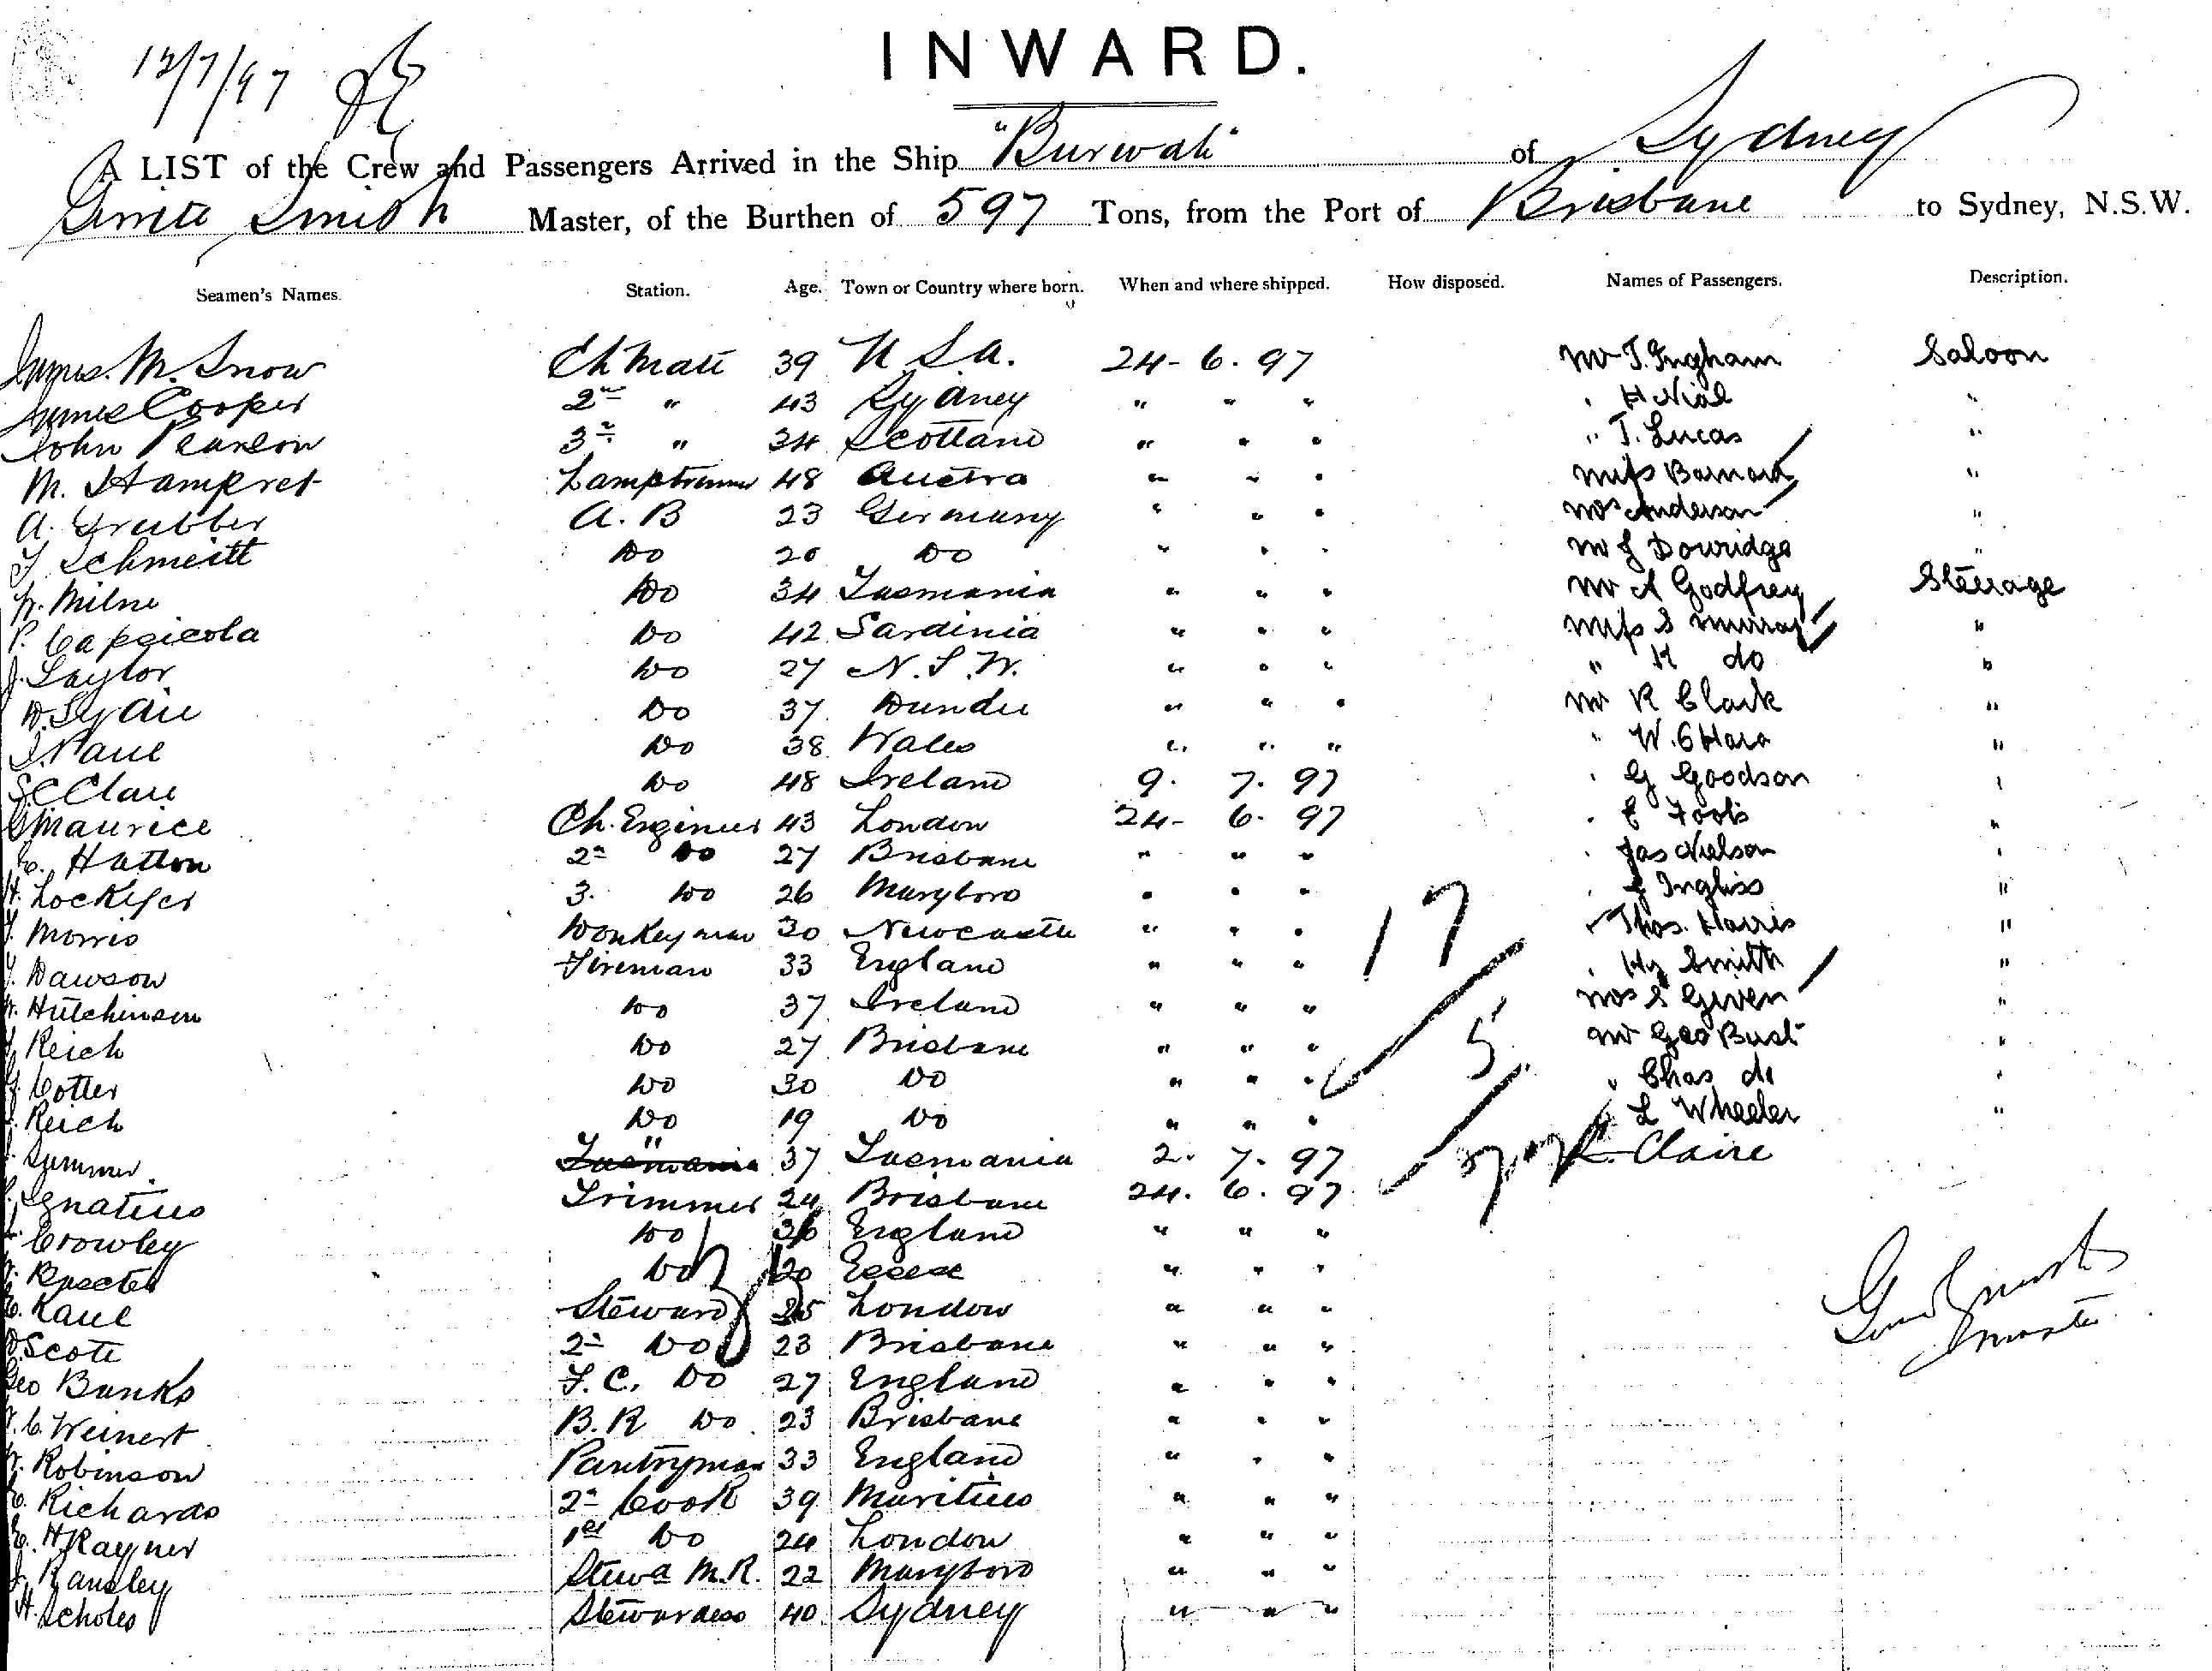 12/7/97
INWARD.
A LIST of the Crew and Passengers Arrived in the Ship "Burwah" of Sydney
Smith Master, of the Burthen of 597 Tons, from the Port of Brisbane to Sydney, N.S.W.
Seamen's Names. Station. Age. Town or Country where born. When and where shipped. How disposed. Names of Passengers. Description.
James. M. Snow Ch Mate 39 U S A. 24 - 6 . 97 Mr T. Ingham Saloon
James Cooper 2nd " 43 Sydney " " " " H Nial "
John Pearson 3rd " 34 Scotland " " " " T. Lucas "
M. Stampret Lamptrimmer 48 Austra " " " Miss Barnard "
A. Grubber A. B 23 Germany " " " Mrs Anderson "
Schmeitt Do 20 Do " " " Mr J Dowridge "
Milne Do 34 Tasmania " " " Mr A Godfrey Steerage
P. Capsicola Do 42 Sardinia " " " Miss S Murray "
J. Taylor Do 27 N. S. W. " " " " K do "
D. Do 37 Dundee " " " Mr R Clark "
Do 38 Wales " " " " W. O'Hara "
Clare Do 48 Ireland 9. 7. 97 " G Goodson "
Maurice Ch. Engineer 43 London 24- 6- 97 " E Foote "
C. Hatton 2nd Do 27 Brisbane " " " " Jas Nielson "
H. Lockyer 3. Do 26 Maryboro " " " " J Ingliss "
Morris Donkeyman 30 Newcastle " " " 17 " Thos. Harris "
Dawson Fireman 33 England " " " " Hy Smith "
Hutchinson Do 37 Ireland " " " Mrs S Given "
Reich Do 27 Brisbane " " " 5 Mr Geo Bust "
Cotter Do 30 Do " " " " Chas do "
Reich Do 19 Do " " " " L Wheeler "
" Tasmania 37 Tasmania 2. 7. 97 Claire
Ignatius Trimmer 24 Brisbane 24. 6. 97
Crowley Do 36 England " " "
Do 20 Essex " " "
Steward 25 London " " "
D Scott 2nd Do 23 Brisbane " " "
Geo Banks F. C. Do 27 England " " "
C. Weinert B. R Do 23 Brisbane " " "
Robinson Pantryman 33 England " " "
Richards 2nd Cook 39 Maritius " " "
H Rayner 1st Do 24 London " " "
Ransley Stewd M. R. 22 Maryboro " " "
H. Scholes Stewardess 40 Sydney " " "
Master